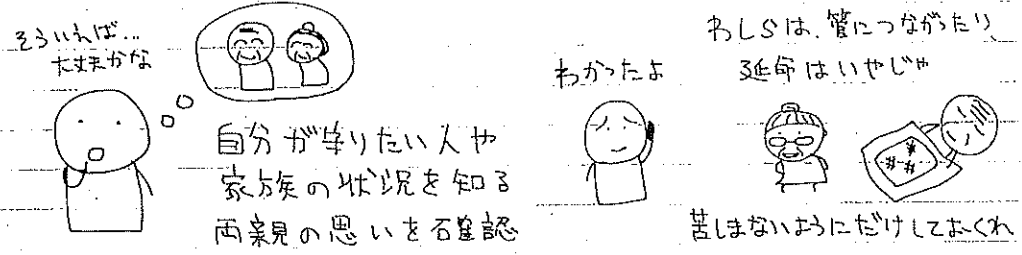 そういえば...
大丈夫かな
自分が守りたい人や
家族の状況を知る
両親の思いを確認
わかったよ
わしらは、管につながったり、
延命はいやじゃ
苦しまないようにだけしておくれ